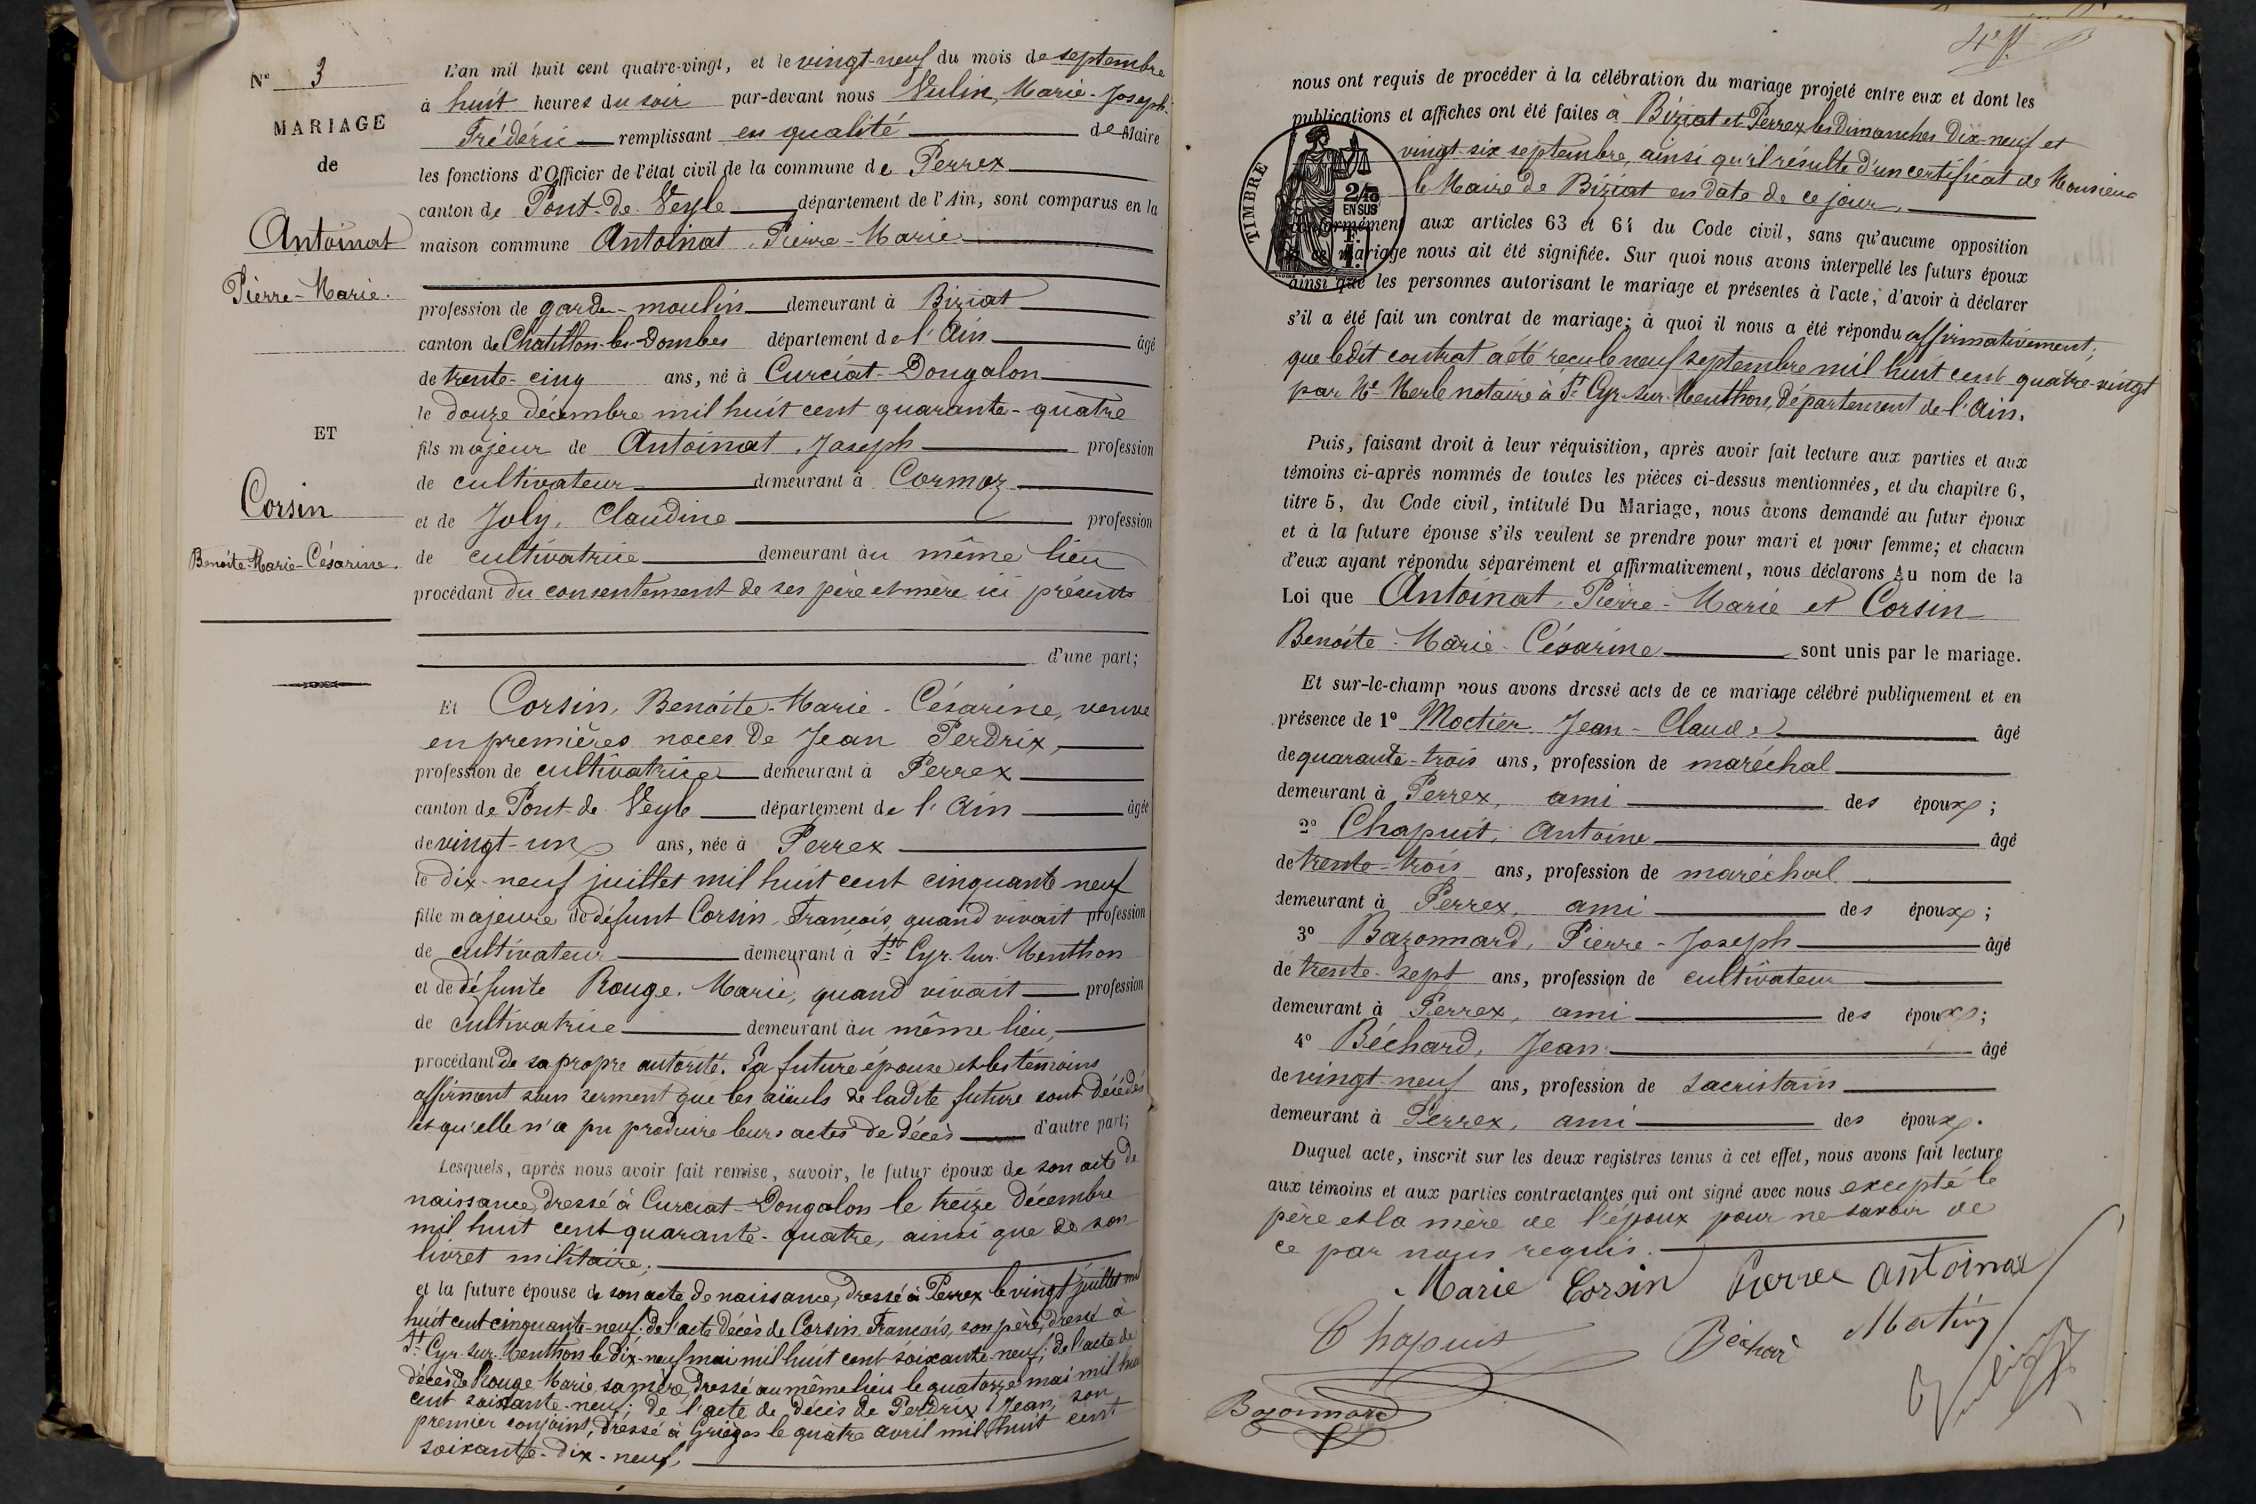 N° 3
MARIAGE
de
Antoinat
Pierre-Marie.
ET
Corsin
Benoîte-Marie-Césarine.
L'an mil huit cent quatre-vingt, et le vingt-neuf du mois de septembre
à huit heures du soir par-devant nous Vulin, Marie-Joseph-
Frédéric remplissant en qualité de Maire
les fonctions d'Officier de l'état civil de la commune de Perrex
canton de Pont-de-Veyle département de l'Ain, sont comparus en la
maison commune Antoinat, Pierre-Marie
profession de garde-moulin demeurant à Biziat
canton de Chatillon-les-Dombes département de l'Ain âgé
de trente-cinq ans, né à Curciat-Dongalon
le douze décembre mil huit cent quarante-quatre
fils majeur de Antoinat, Joseph profession
de cultivateur demeurant à Cormoz
et de Joly, Claudine profession
de cultivatrice demeurant au même lieu
procédant du consentement de ses père et mère ici présents
d'une part;
Et Corsin, Benoîte-Marie-Césarine, veuve
en premières noces de Jean Perdrix,
profession de cultivatrice demeurant à Perrex
canton de Pont-de-Veyle département de l'Ain âgée
de vingt-un ans, née à Perrex
le dix-neuf juillet mil huit cent cinquante neuf
fille majeure de défunt Corsin, François, quand vivait profession
de cultivateur demeurant à St Cyr-sur-Menthon
et de défunte Rouge, Marie, quand vivait profession
de cultivatrice demeurant au même lieu,
procédant de sa propre autorité. La future épouse et les témoins
affirment sous serment que les aïeuls de ladite future sont décédés
et qu'elle n'a pu produire leurs actes de décès d'autre part;
Lesquels, après nous avoir fait remise, savoir, le futur époux de son acte de
naissance, dressé à Curciat-Dongalon le treize décembre
mil huit cent quarante-quatre, ainsi que de son
livret militaire;
et la future épouse de son acte de naissance, dressé à Perrex le vingt juillet mil
huit cent cinquante-neuf; de l'acte décès de Corsin François, son père, dressé à
St Cyr-sur-Menthon le dix-neuf mai mil huit cent soixante-neuf; de l'acte de
décès de Rouge Marie, sa mère, dressé au même lieu le quatorze mai mil huit
cent soixante-neuf; de l'acte de décès de Perdrix Jean, son
premier conjoint, dressé à Grièges le quatre avril mil huit cent
soixante-dix-neuf,
nous ont requis de procéder à la célébration du mariage projeté entre eux et dont les
publications et affiches ont été faites à Biziat et Perrex les dimanches dix-neuf et
vingt-six septembre, ainsi qu'il résulte d'un certificat de Monsieur
le Maire de Biziat en date de ce jour,
TIMBRE
2/10
EN SUS
conformément aux articles 63 et 64 du Code civil, sans qu'aucune opposition
à ce mariage nous ait été signifiée. Sur quoi nous avons interpellé les futurs époux
ainsi que les personnes autorisant le mariage et présentes à l'acte, d'avoir à déclarer
s'il a été fait un contrat de mariage; à quoi il nous a été répondu affirmativement;
que ledit contrat a été reçu le neuf septembre mil huit cent quatre-vingt
par Me Merle notaire à St Cyr-sur-Menthon, département de l'Ain.
Puis, faisant droit à leur réquisition, après avoir fait lecture aux parties et aux
témoins ci-après nommés de toutes les pièces ci-dessus mentionnées, et du chapitre 6,
titre 5, du Code civil, intitulé Du Mariage, nous avons demandé au futur époux
et à la future épouse s'ils veulent se prendre pour mari et pour femme; et chacun
d'eux ayant répondu séparément et affirmativement, nous déclarons au nom de la
Loi que Antoinat, Pierre-Marie et Corsin
Benoîte-Marie-Césarine sont unis par le mariage.
Et sur-le-champ nous avons dressé acte de ce mariage célébré publiquement et en
présence de 1° Moctier Jean-Claude âgé
de quarante-trois ans, profession de maréchal
demeurant à Perrex, ami des époux;
2° Chapuit, Antoine âgé
de trente-trois ans, profession de maréchal
demeurant à Perrex, ami des époux;
3° Bazonnard, Pierre-Joseph âgé
de trente-sept ans, profession de cultivateur
demeurant à Perrex, ami des époux;
4° Béchard, Jean âgé
de vingt-neuf ans, profession de sacristain
demeurant à Perrex, ami des époux.
Duquel acte, inscrit sur les deux registres tenus à cet effet, nous avons fait lecture
aux témoins et aux parties contractantes qui ont signé avec nous excepté le
père et la mère de l'époux pour ne savoir de
ce par nous requis.
Marie Corsin Pierre Antoinat
Chapuis Béchard
Bazonnard